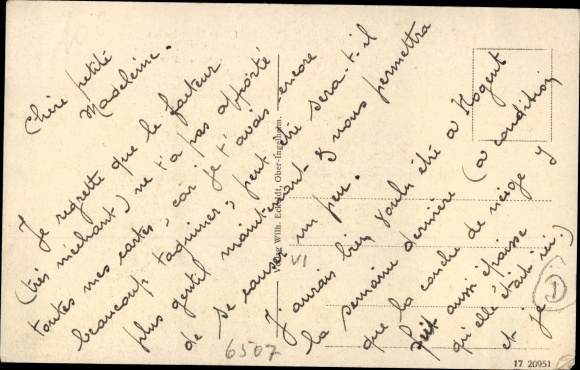 Chère petite
Madeleine.
Je regrette que le facteur
(très méchant) ne t'a pas apporté
toutes mes cartes, car je t'avais encore
beaucoup taquinée, peut être sera-t-il
plus gentil maintenant & nous permettra
de se causer un peu.
J'aurais bien voulu être à Nogent
la semaine dernière (à condition
que la couche de neige y
fut aussi épaisse
qu'elle était ici)
et je
Verlag Wilh. Eckoldt, Ober-Ingelheim.
VI
6507
1
17 20951